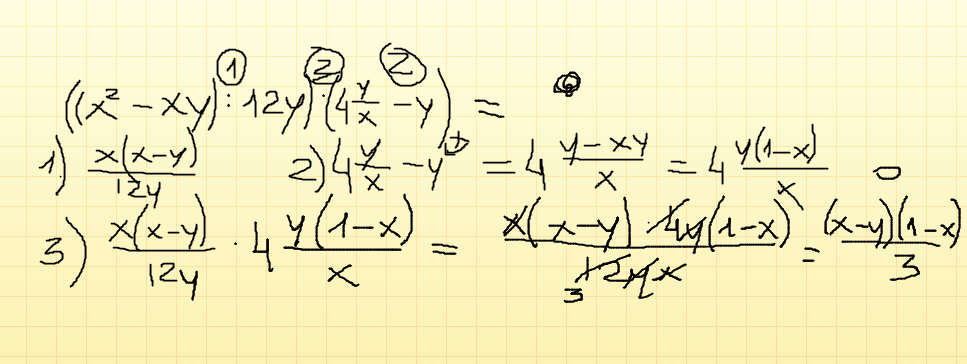 ① ③ ②
((x² - xy) : 12y) · (4 y/x - y) =
1) x(x-y)/12y 2) 4 y/x - y = 4 y-xy/x = 4 y(1-x)/x
3) x(x-y)/12y · 4 y(1-x)/x = x(x-y) · 4y(1-x)/12yx = (x-y)(1-x)/3
3